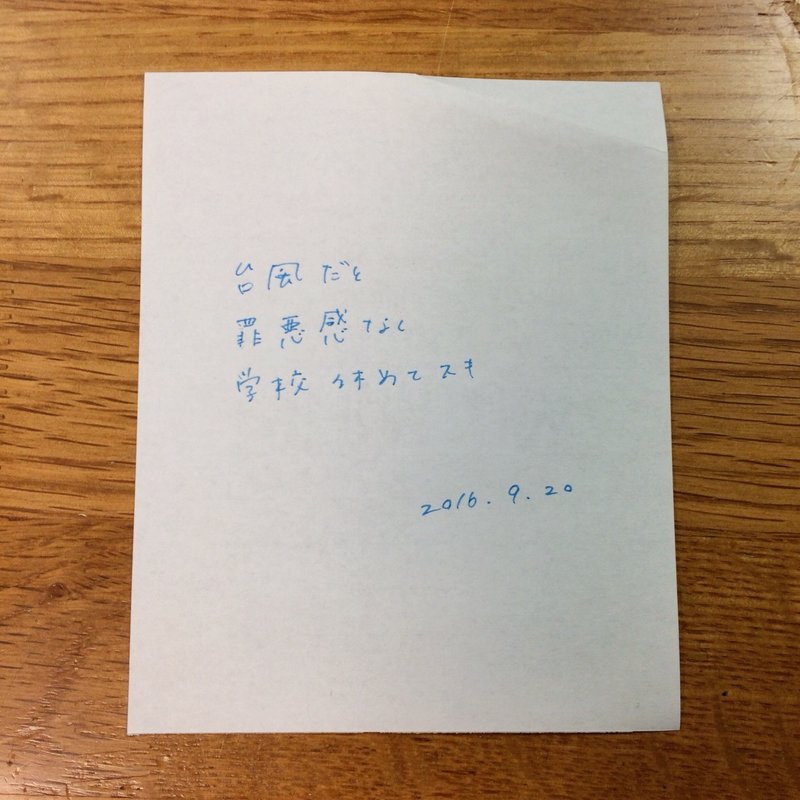 台風だと
罪悪感なく
学校休めてスキ
2016.9.20